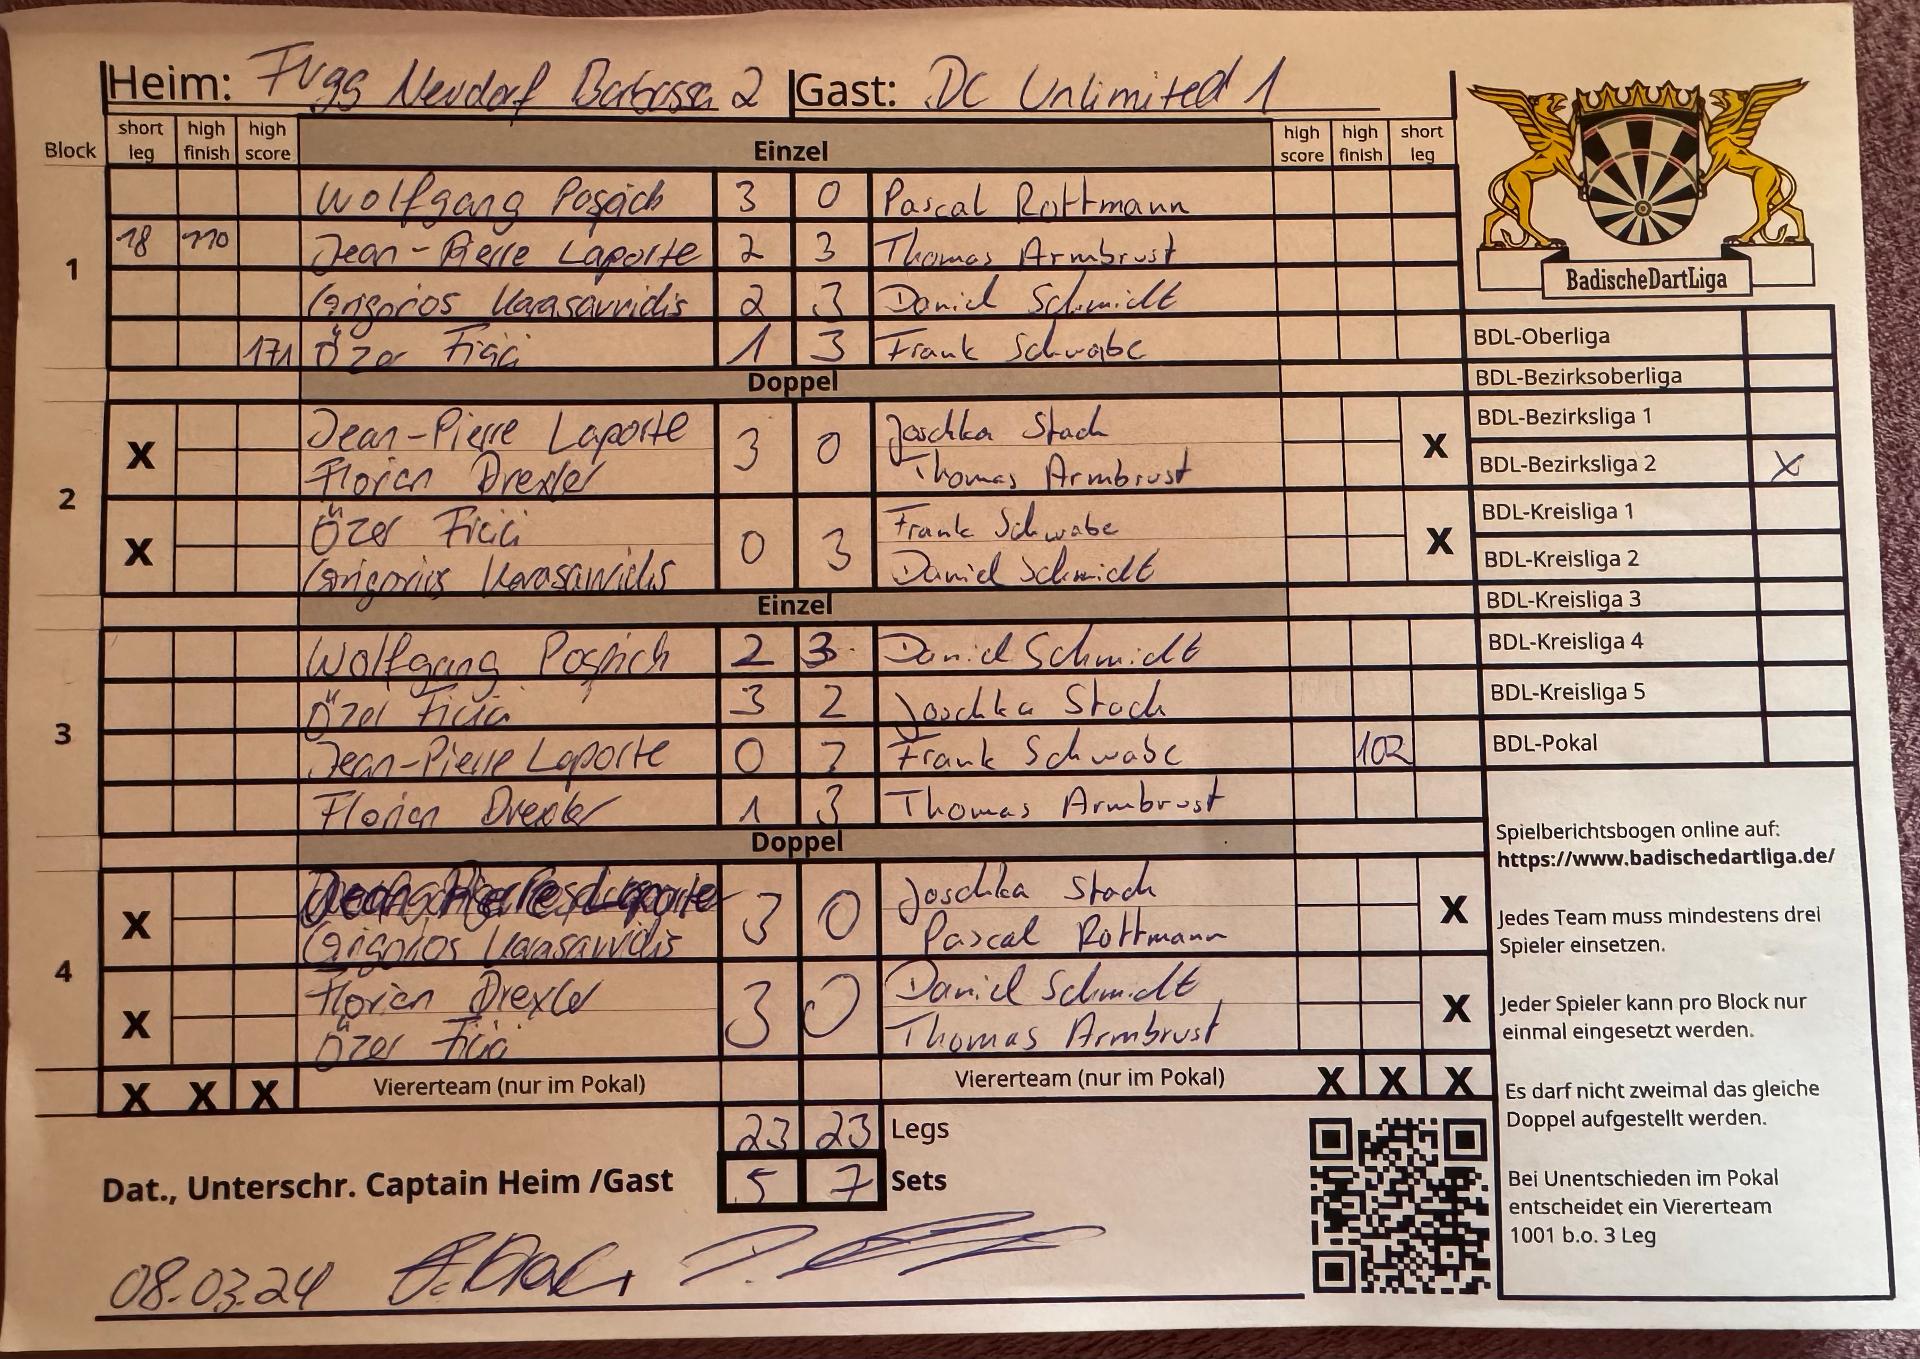 Heim: Fvgg Neudorf Barbossa 2 Gast: DC Unlimited 1
Block short leg high finish high score Einzel high score high finish short leg
1
Wolfgang Pospich 3 0 Pascal Rottmann
18 110 Jean-Pierre Laporte 2 3 Thomas Armbrust
Grigorios Karasavvidis 2 3 Daniel Schmidt
171 Özer Ficici 1 3 Frank Schwabe
Doppel
2
X Jean-Pierre Laporte 3 0 Joschka Stach X
Florian Drexler Thomas Armbrust
X Özer Ficici 0 3 Frank Schwabe X
Grigorios Karasavvidis Daniel Schmidt
Einzel
3
Wolfgang Pospich 2 3 Daniel Schmidt
Özer Ficici 3 2 Joschka Stach
Jean-Pierre Laporte 0 3 Frank Schwabe 102
Florian Drexler 1 3 Thomas Armbrust
Doppel
4
X Laporte 3 0 Joschka Stach X
Grigorios Karasavvidis Pascal Rottmann
X Florian Drexler 3 0 Daniel Schmidt X
Özer Ficici Thomas Armbrust
X X X Viererteam (nur im Pokal) Viererteam (nur im Pokal) X X X
23 23 Legs
Dat., Unterschr. Captain Heim /Gast 5 7 Sets
08.03.24
BadischeDartLiga
BDL-Oberliga
BDL-Bezirksoberliga
BDL-Bezirksliga 1
BDL-Bezirksliga 2 X
BDL-Kreisliga 1
BDL-Kreisliga 2
BDL-Kreisliga 3
BDL-Kreisliga 4
BDL-Kreisliga 5
BDL-Pokal
Spielberichtsbogen online auf:
https://www.badischedartliga.de/
Jedes Team muss mindestens drei
Spieler einsetzen.
Jeder Spieler kann pro Block nur
einmal eingesetzt werden.
Es darf nicht zweimal das gleiche
Doppel aufgestellt werden.
Bei Unentschieden im Pokal
entscheidet ein Viererteam
1001 b.o. 3 Leg